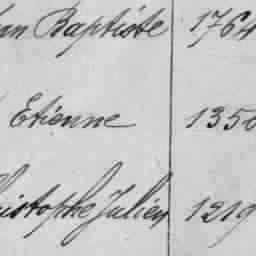 Baptiste 1764
Etienne 1350
Christophe Julien 1219